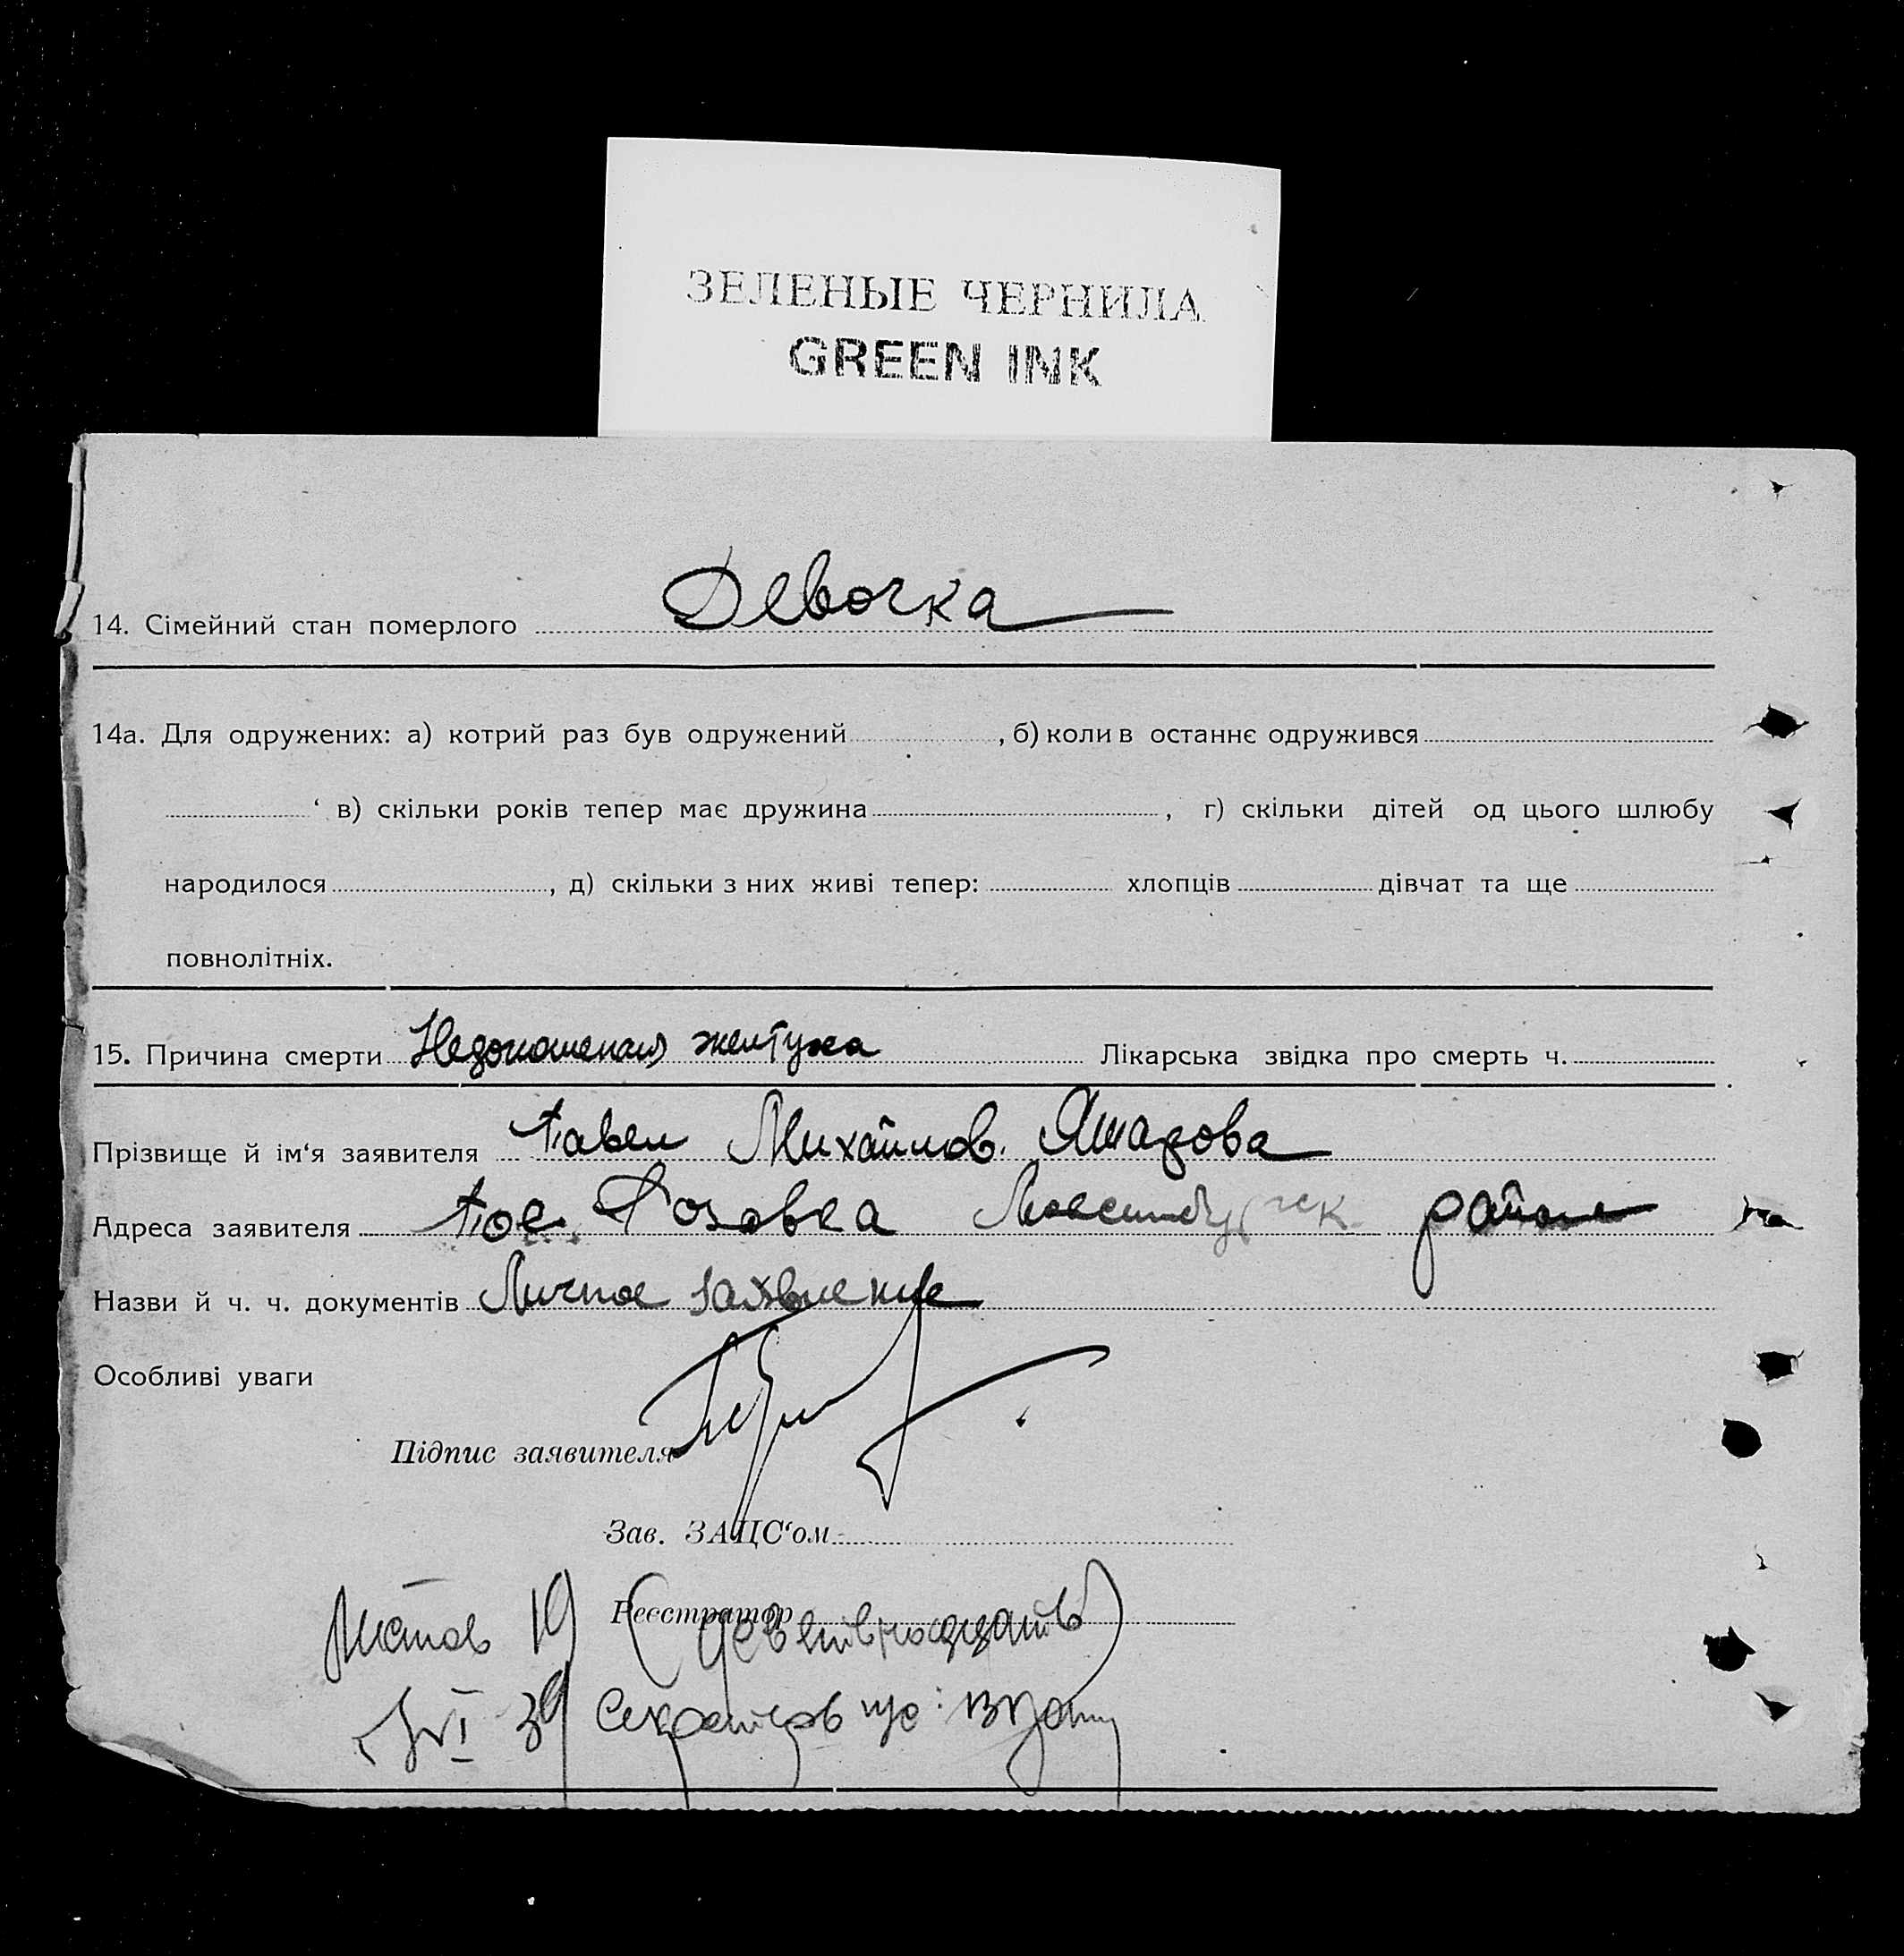 ЗЕЛЕНЫЕ ЧЕРНИЛА
GREEN INK
14. Сімейний стан померлого Девочка
14а. Для одружених: а) котрий раз був одружений , б) коли в останнє одружився
‘ в) скільки років тепер має дружина , г) скільки дітей од цього шлюбу
народилося , д) скільки з них живі тепер: хлопців дівчат та ще
повнолітніх.
15. Причина смерти желтуха Лікарська звідка про смерть ч.
Прізвище й ім‘я заявителя Павел Михайлов.
Адреса заявителя Пос. Розовка район
Назви й ч. ч. документів Личное заявление
Особливі уваги
Підпис заявителя
Зав. ЗАЦС‘ом
Реєстратор
Листов 19 (девятнадцать)
VI 39 Секретарь